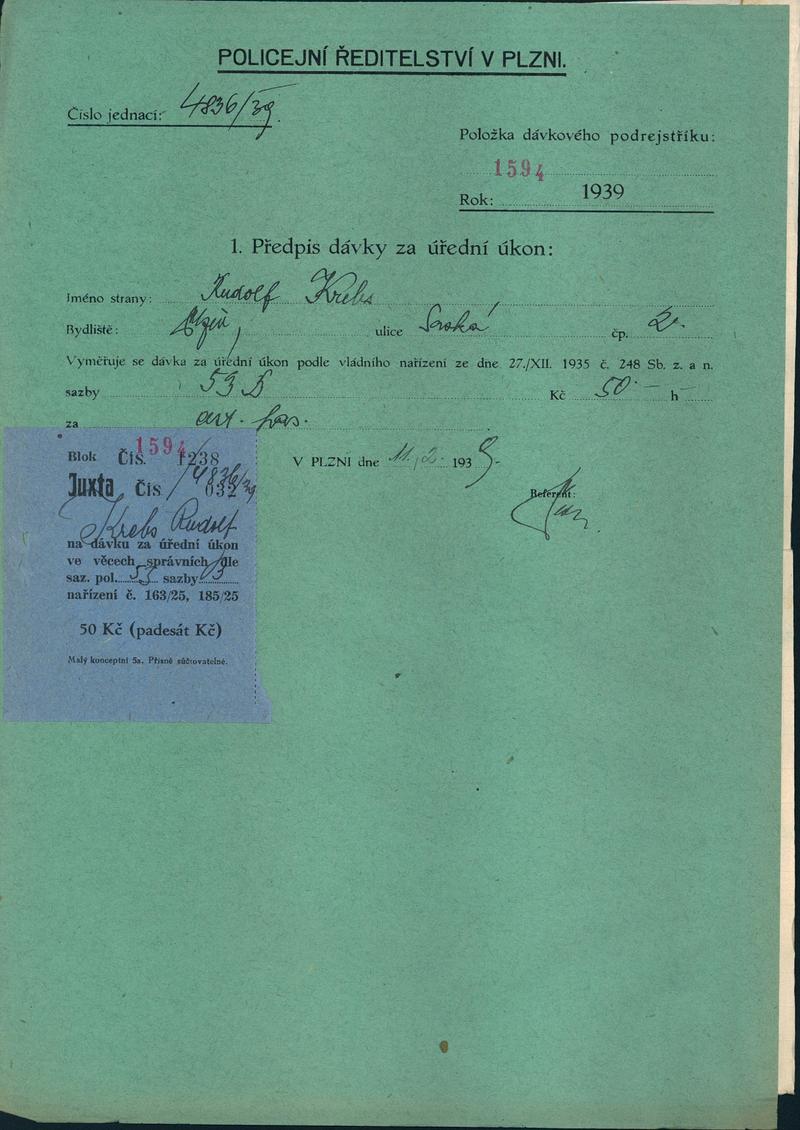 POLICEJNÍ ŘEDITELSTVÍ V PLZNI.
Číslo jednací: 4836/39.
Položka dávkového podrejstříku:
1594
Rok: 1939
1. Předpis dávky za úřední úkon:
Jméno strany: Rudolf Krebs
Bydliště: Plzeň, ulice Saská čp. 2.
Vyměřuje se dávka za úřední úkon podle vládního nařízení ze dne 27./XII. 1935 č. 248 Sb. z. a n.
sazby 53 B Kč 50·— h
za
V PLZNI dne 11./2. 1939.
Referent:
Blok Čís. 1594 1238
Juxta Čís 4836/39 032
Krebs Rudolf
na dávku za úřední úkon
ve věcech správních dle
saz. pol. 53 sazby B
nařízení č. 163/25, 185/25
50 Kč (padesát Kč)
Malý konceptní 5a. Přísně súčtovatelné.